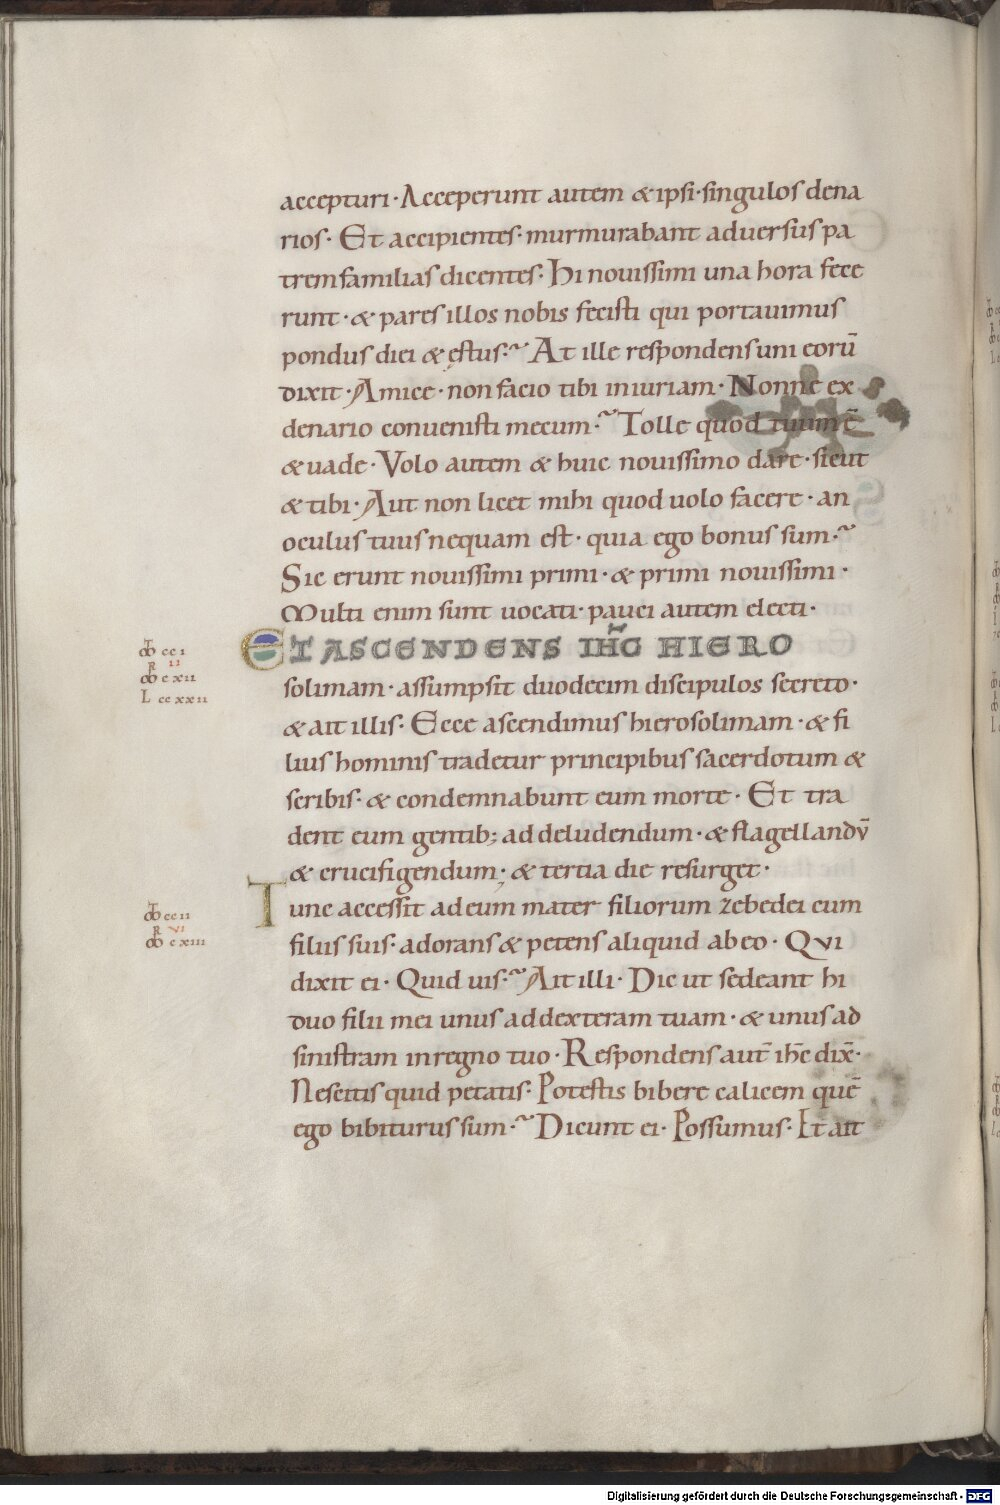 accepturi · Acceperunt autem & ipsi · singulos dena
rios · Et accipientes · murmurabant aduersus pa
tremfamilias dicentes · Hi nouissimi una hora fece
runt · & pares illos nobis fecisti qui portauimus
pondus diei & ęstus · At ille respondens uni eorū
dixit · Amice · non facio tibi iniuriam · Nonne ex
denario conuenisti mecum · Tolle quod tuum ē
& uade · Volo autem & huic nouissimo dare · sicut
& tibi · Aut non licet mihi quod uolo facere · an
oculus tuus nequam est · quia ego bonus sum ·
Sic erunt nouissimi primi · & primi nouissimi ·
Multi enim sunt uocati · pauci autem electi ·
ET ASCENDENS IHC HIERO
solimam · assumpsit duodecim discipulos secreto ·
& ait illis · Ecce ascendimus hierosolimam · & fi
lius hominis tradetur principibus sacerdotum &
scribis · & condemnabunt eum morte · Et tra
dent eum gentib; ad deludendum · & flagellandū
& crucifigendum · & tertia die resurget ·
Tunc accessit ad eum mater filiorum zebedei cum
filiis suis · adorans & petens aliquid ab eo · Qui
dixit ei · Quid uis · Ait illi · Dic ut sedeant hi
duo filii mei unus ad dexteram tuam · & unus ad
sinistram in regno tuo · Respondens aut̄ ih̄c dix̄ ·
Nescitis quid petatis · Potestis bibere calicem quē
ego bibiturus sum · Dicunt ei · Possumus · Et ait
cc i
R II
c xii
L cc xxii
cc ii
R VI
c xiii
Digitalisierung gefördert durch die Deutsche Forschungsgemeinschaft - DFG